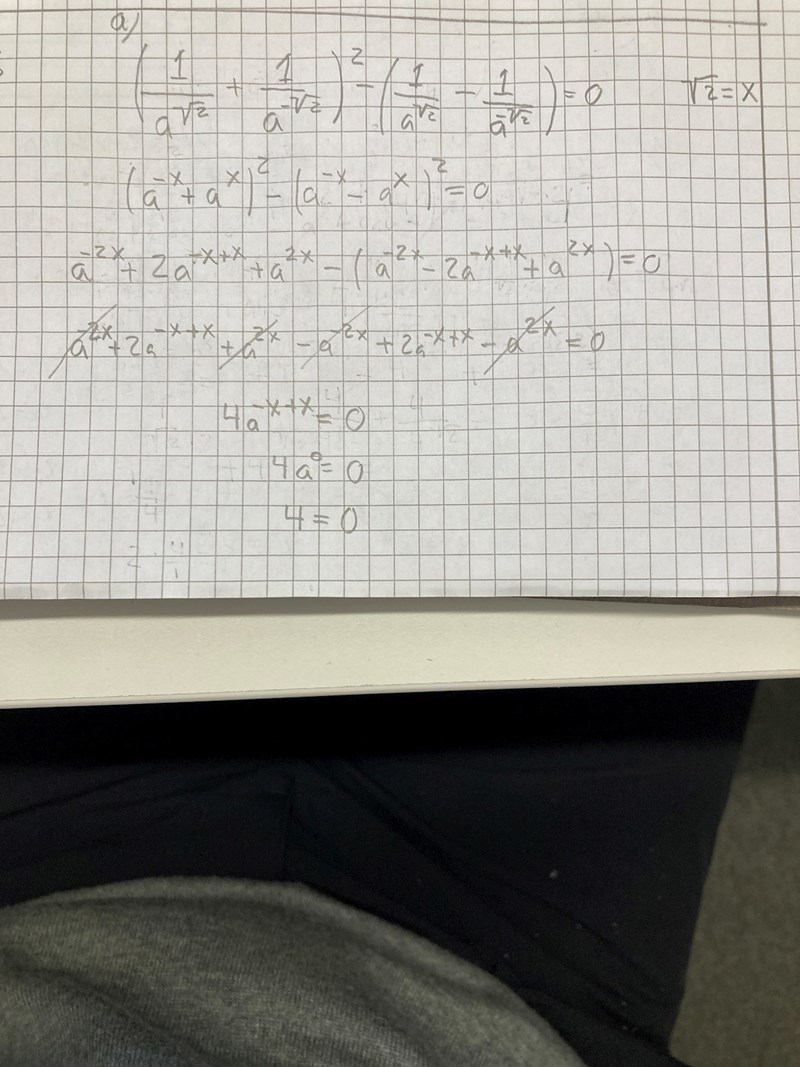 a)
(1/a^√2 + 1/a^-√2)^2 - (1/a^√2 - 1/a^-√2) = 0 √2 = x
(a^-x + a^x)^2 - (a^-x - a^x)^2 = 0
a^-2x + 2a^-x+x + a^2x - (a^-2x - 2a^-x+x + a^2x) = 0
a^-2x + 2a^-x+x + a^2x - a^-2x + 2a^-x+x - a^2x = 0
4a^-x+x = 0
4a^0 = 0
4 = 0